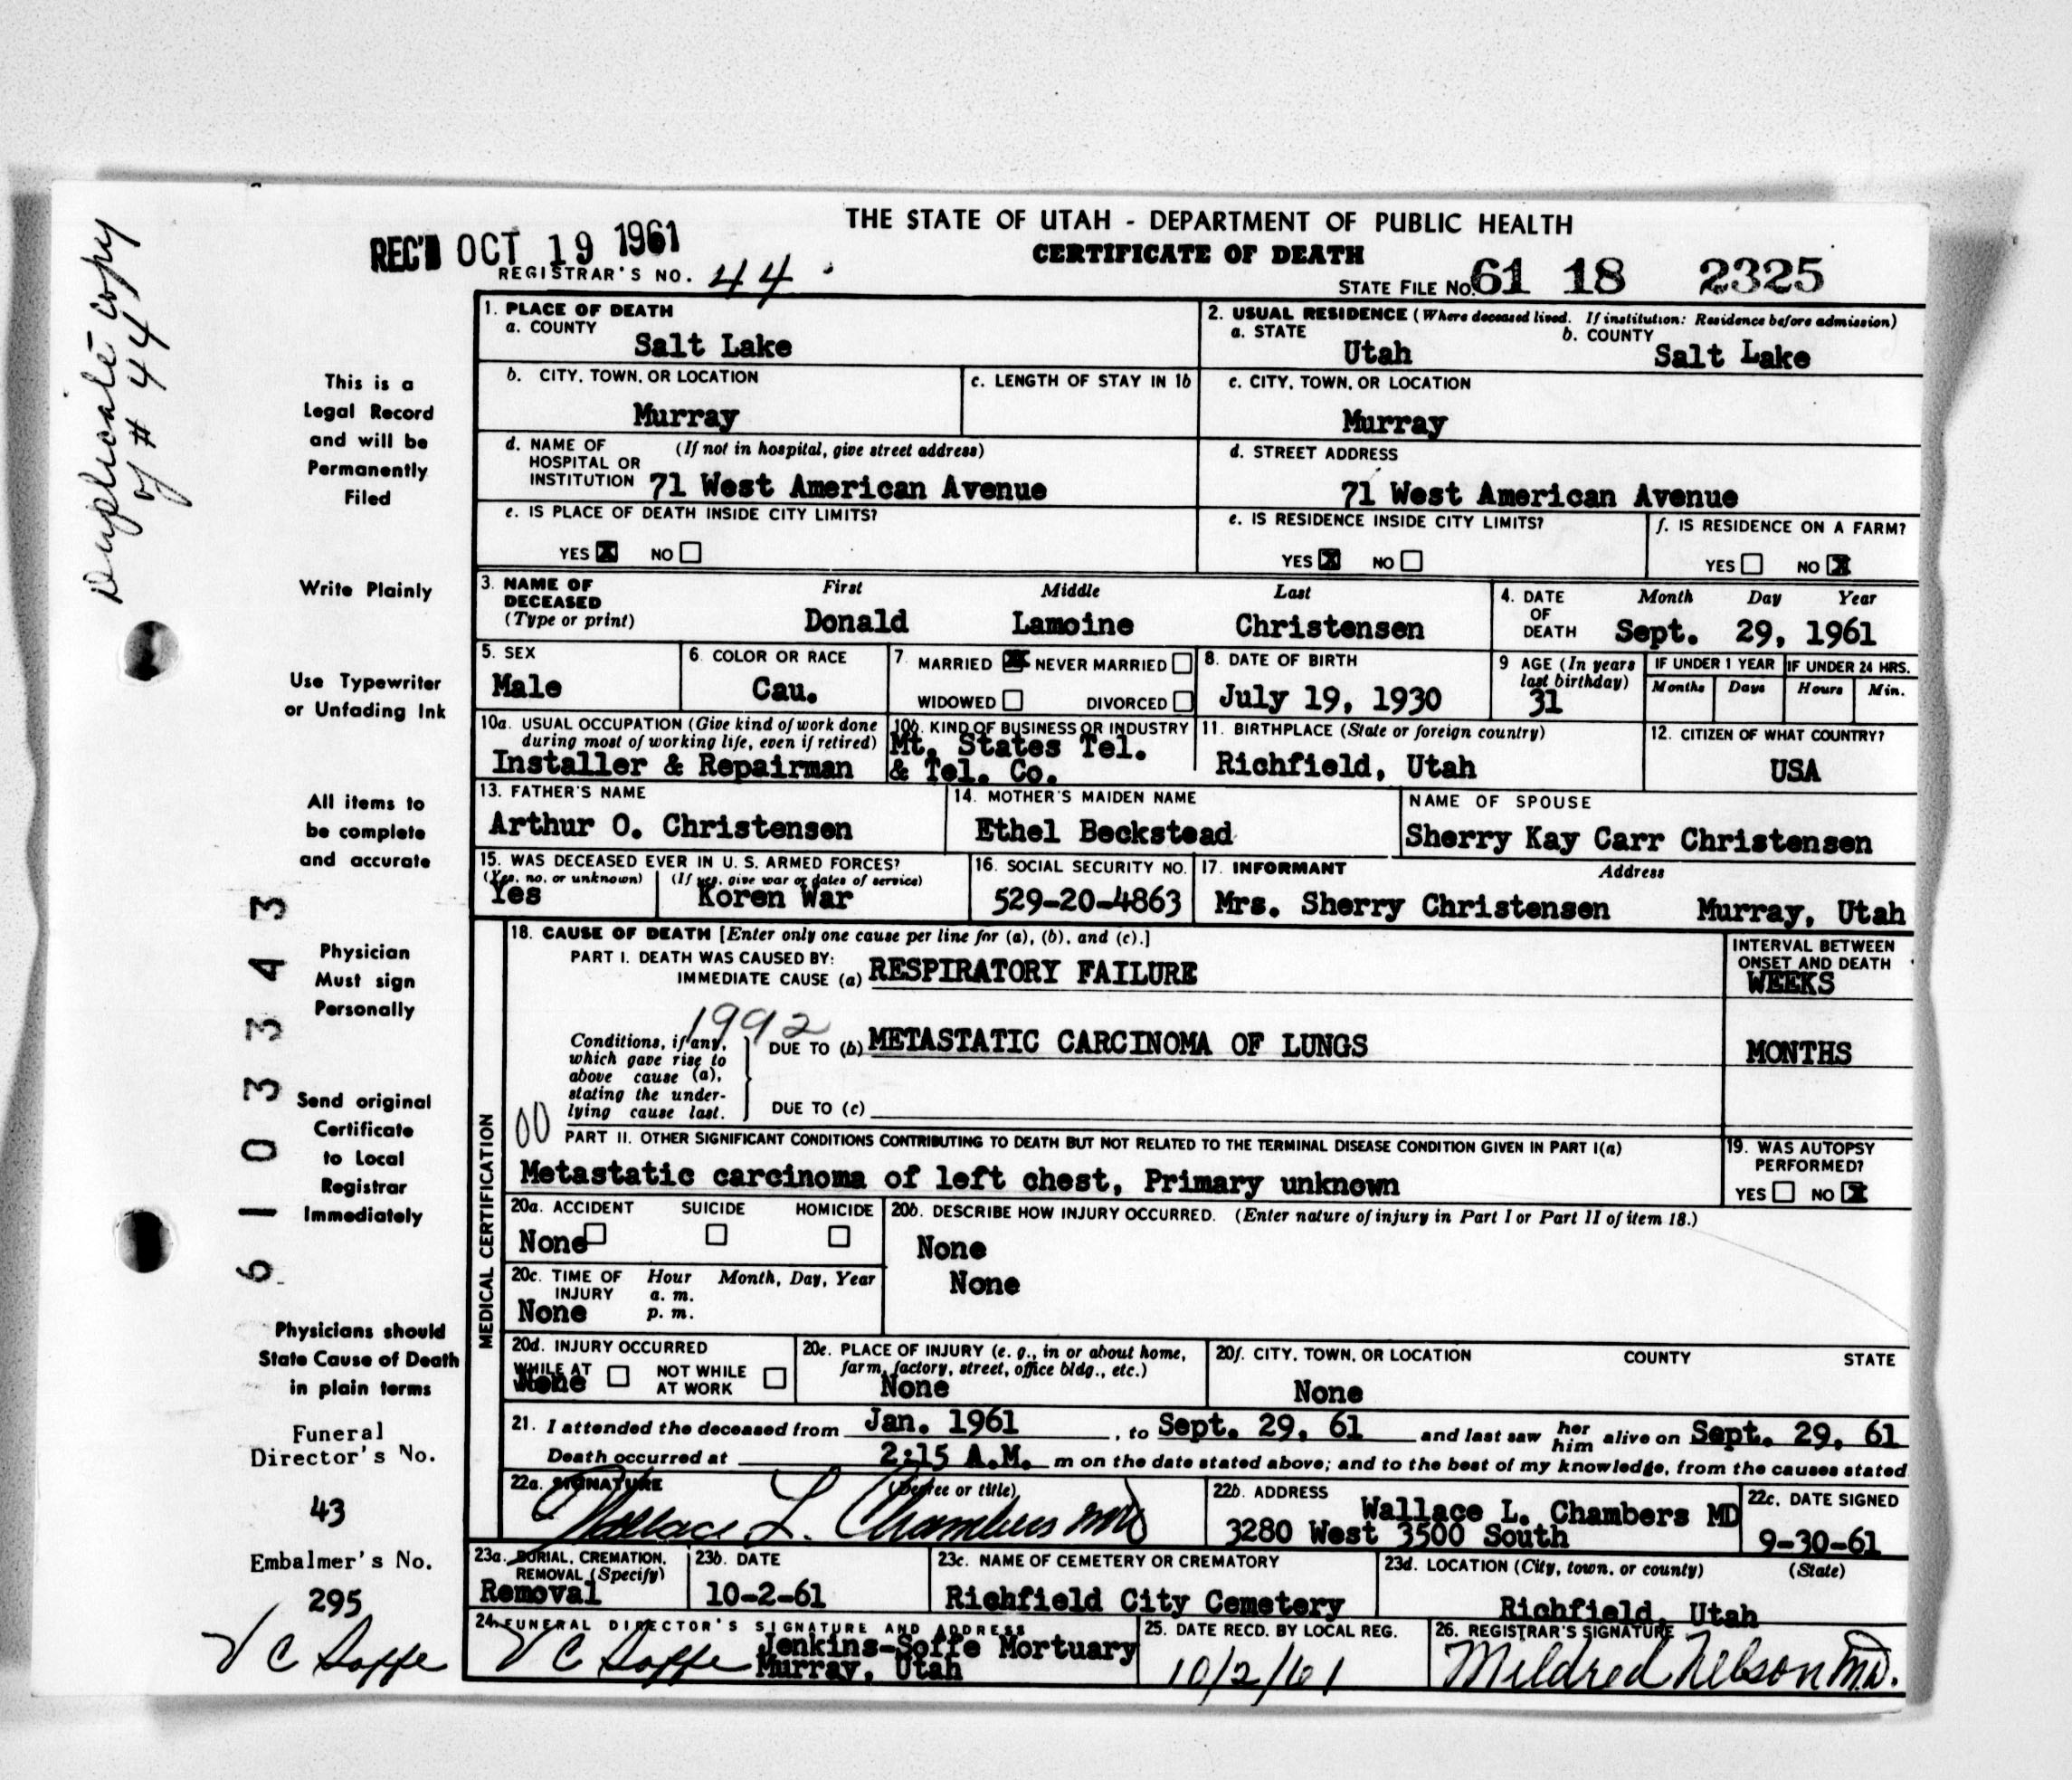 THE STATE OF UTAH - DEPARTMENT OF PUBLIC HEALTH
REC'D OCT 19 1961
CERTIFICATE OF DEATH
REGISTRAR'S NO. 44
STATE FILE NO. 61 18 2325
Duplicate copy
of # 44
This is a
Legal Record
and will be
Permanently
Filed
Write Plainly
Use Typewriter
or Unfading Ink
All items to
be complete
and accurate
Physician
Must sign
Personally
Send original
Certificate
to Local
Registrar
Immediately
Physicians should
State Cause of Death
in plain terms
61033443
Funeral
Director's No.
43
Embalmer's No.
295
V C Soffe
1. PLACE OF DEATH
a. COUNTY
Salt Lake
b. CITY, TOWN, OR LOCATION
Murray
c. LENGTH OF STAY IN 1b
d. NAME OF (If not in hospital, give street address)
HOSPITAL OR
INSTITUTION 71 West American Avenue
e. IS PLACE OF DEATH INSIDE CITY LIMITS?
YES X NO
2. USUAL RESIDENCE (Where deceased lived. If institution: Residence before admission)
a. STATE
Utah
b. COUNTY
Salt Lake
c. CITY, TOWN, OR LOCATION
Murray
d. STREET ADDRESS
71 West American Avenue
e. IS RESIDENCE INSIDE CITY LIMITS?
YES X NO
f. IS RESIDENCE ON A FARM?
YES NO X
3. NAME OF DECEASED (Type or print)
First Middle Last
Donald Lamoine Christensen
4. DATE OF DEATH
Month Day Year
Sept. 29, 1961
5. SEX
Male
6. COLOR OR RACE
Cau.
7. MARRIED X NEVER MARRIED
WIDOWED DIVORCED
8. DATE OF BIRTH
July 19, 1930
9 AGE (In years
last birthday)
31
IF UNDER 1 YEAR
Months Days
IF UNDER 24 HRS.
Hours Min.
10a. USUAL OCCUPATION (Give kind of work done
during most of working life, even if retired)
Installer & Repairman
10b. KIND OF BUSINESS OR INDUSTRY
Mt. States Tel.
& Tel. Co.
11. BIRTHPLACE (State or foreign country)
Richfield, Utah
12. CITIZEN OF WHAT COUNTRY?
USA
13. FATHER'S NAME
Arthur O. Christensen
14. MOTHER'S MAIDEN NAME
Ethel Beckstead
NAME OF SPOUSE
Sherry Kay Carr Christensen
15. WAS DECEASED EVER IN U. S. ARMED FORCES?
(Yes, no. or unknown) (If yes, give war or dates of service)
Yes Koren War
16. SOCIAL SECURITY NO.
529-20-4863
17. INFORMANT Address
Mrs. Sherry Christensen Murray, Utah
MEDICAL CERTIFICATION
18. CAUSE OF DEATH [Enter only one cause per line for (a), (b), and (c).]
PART I. DEATH WAS CAUSED BY:
IMMEDIATE CAUSE (a) RESPIRATORY FAILURE
INTERVAL BETWEEN
ONSET AND DEATH
WEEKS
1992
Conditions, if any,
which gave rise to
above cause (a),
stating the under-
lying cause last.
DUE TO (b) METASTATIC CARCINOMA OF LUNGS
MONTHS
DUE TO (c)
00
PART II. OTHER SIGNIFICANT CONDITIONS CONTRIBUTING TO DEATH BUT NOT RELATED TO THE TERMINAL DISEASE CONDITION GIVEN IN PART I(a)
Metastatic carcinoma of left chest, Primary unknown
19. WAS AUTOPSY
PERFORMED?
YES NO X
20a. ACCIDENT SUICIDE HOMICIDE
None
20b. DESCRIBE HOW INJURY OCCURRED. (Enter nature of injury in Part I or Part II of item 18.)
None
None
20c. TIME OF INJURY Hour Month, Day, Year
a. m.
p. m.
None
20d. INJURY OCCURRED
WHILE AT NOT WHILE
AT WORK
None
20e. PLACE OF INJURY (e. g., in or about home,
farm, factory, street, office bldg., etc.)
None
20f. CITY, TOWN, OR LOCATION COUNTY STATE
None
21. I attended the deceased from Jan. 1961, to Sept. 29, 61 and last saw her him alive on Sept. 29, 61
Death occurred at 2:15 A.M. m on the date stated above; and to the best of my knowledge, from the causes stated
22a. SIGNATURE (Degree or title)
Wallace L. Chambers MD
22b. ADDRESS
Wallace L. Chambers MD
3280 West 3500 South
22c. DATE SIGNED
9-30-61
23a. BURIAL, CREMATION,
REMOVAL (Specify)
Removal
23b. DATE
10-2-61
23c. NAME OF CEMETERY OR CREMATORY
Richfield City Cemetery
23d. LOCATION (City, town, or county) (State)
Richfield, Utah
24. FUNERAL DIRECTOR'S SIGNATURE AND ADDRESS
V C Soffe Jenkins-Soffe Mortuary
Murray, Utah
25. DATE RECD. BY LOCAL REG.
10/2/61
26. REGISTRAR'S SIGNATURE
Mildred Nelson M.D.